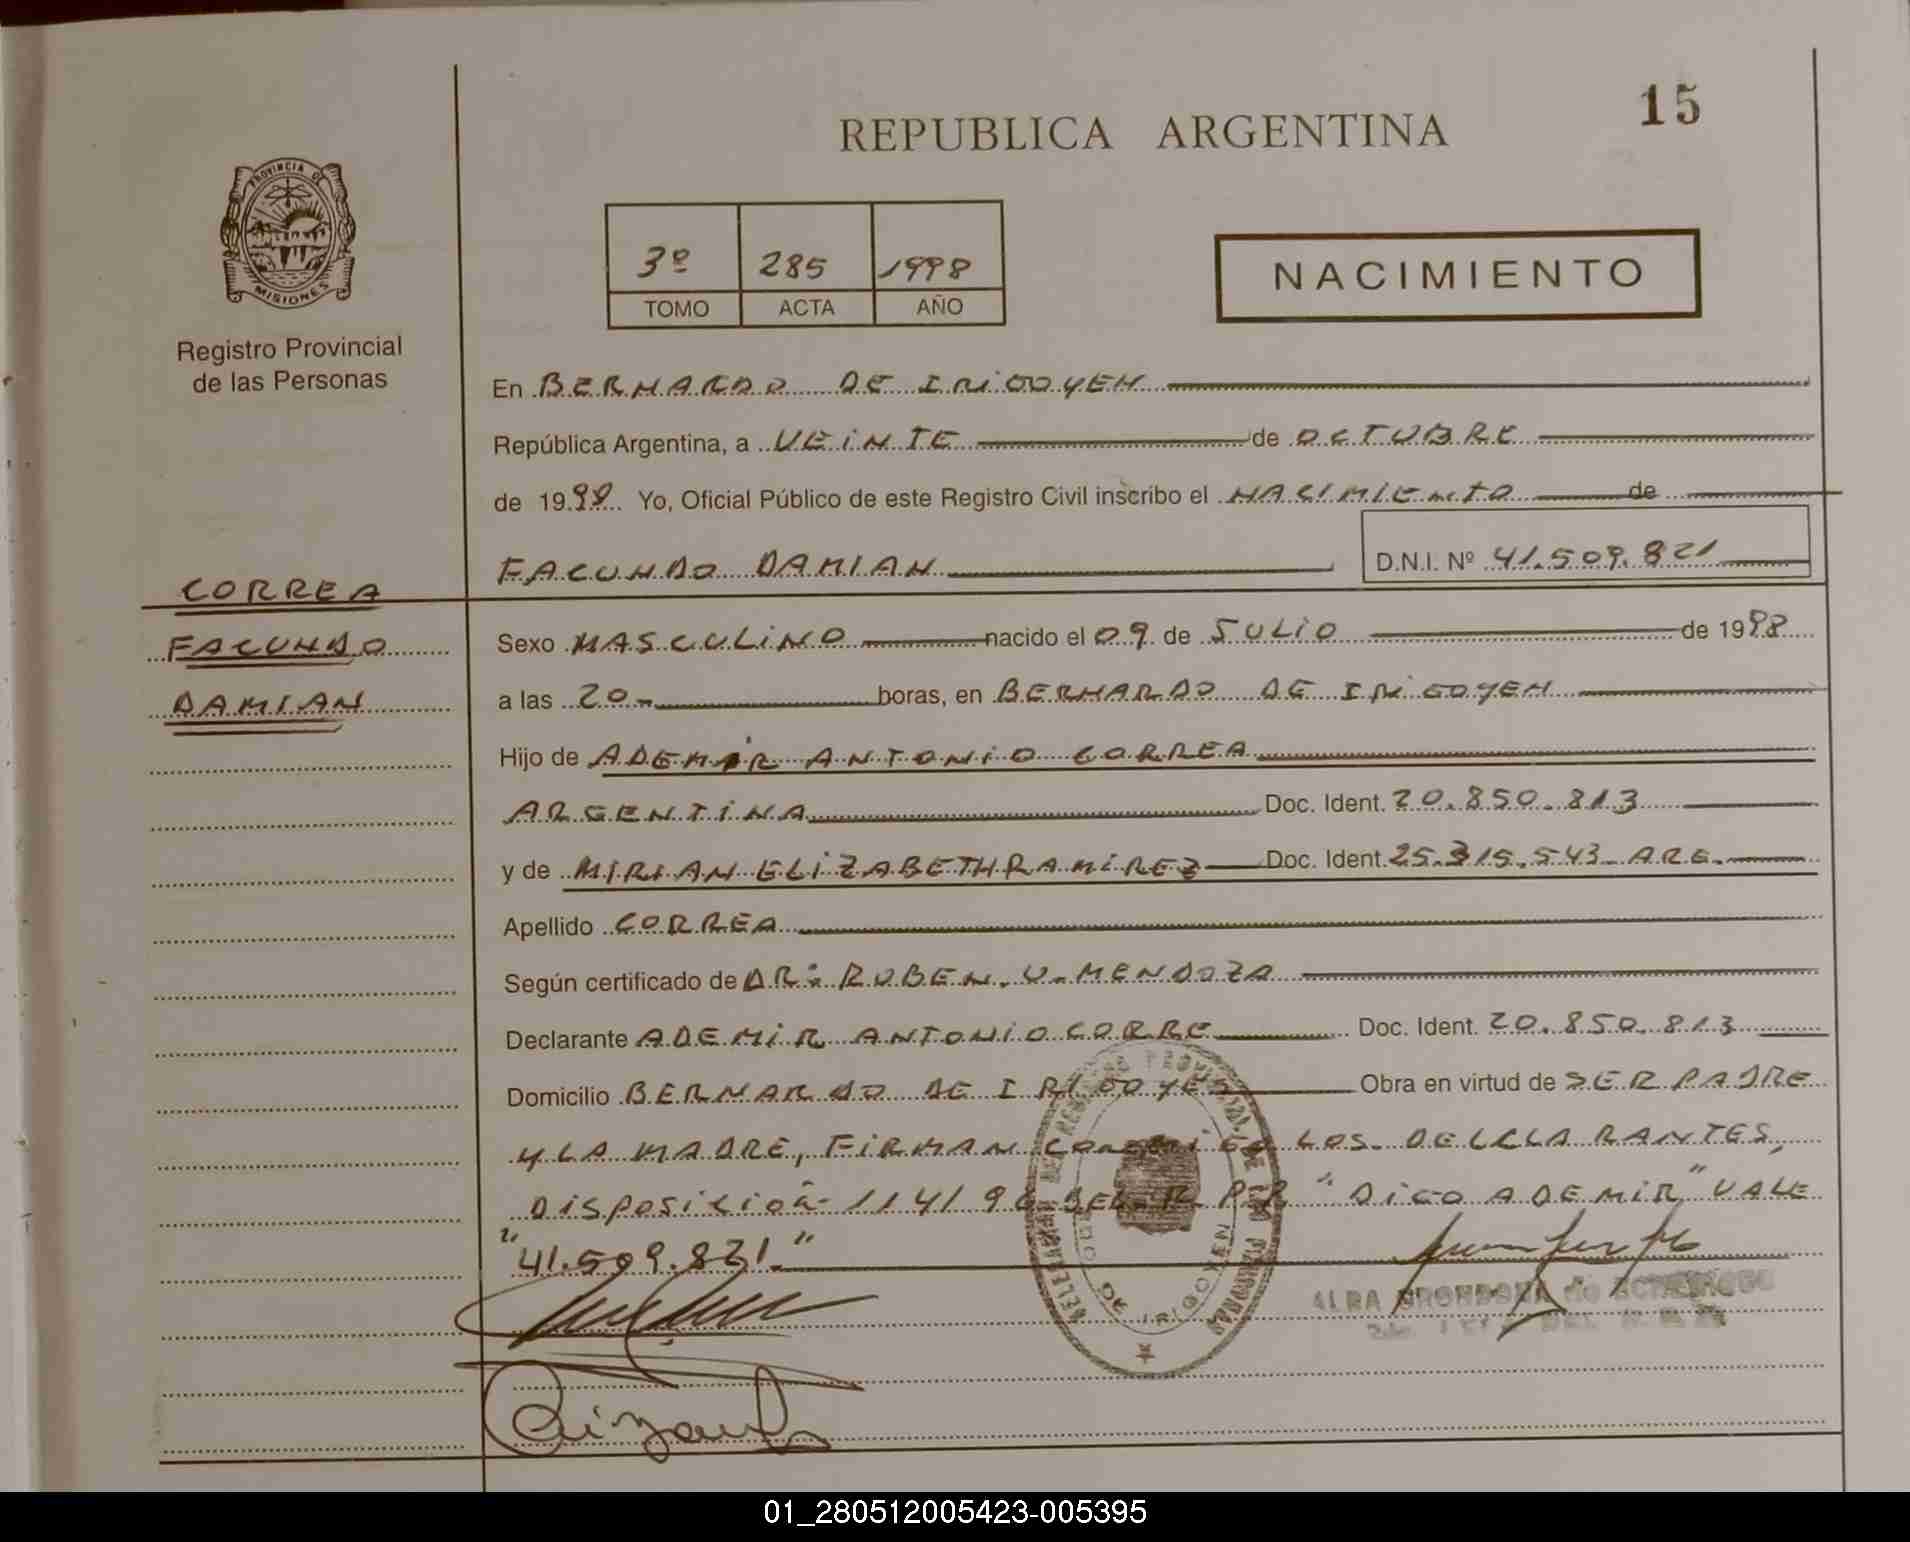 15
REPUBLICA ARGENTINA
PROVINCIA DE
MISIONES
Registro Provincial
de las Personas
3º 285 1998
TOMO ACTA AÑO
NACIMIENTO
En BERNARDO DE IRIGOYEN
República Argentina, a VEINTE de OCTUBRE
de 1998 Yo, Oficial Público de este Registro Civil inscribo el NACIMIENTO de
FACUNDO DAMIAN D.N.I. Nº 41.509.821
CORREA
FACUNDO
DAMIAN
Sexo MASCULINO nacido el 09 de JULIO de 1998
a las 20 boras, en BERNARDO DE IRIGOYEN
Hijo de ADEMIR ANTONIO CORREA
ARGENTINA Doc. Ident. 20.850.813
y de MIRIAN ELIZABETH RAMIREZ Doc. Ident. 25.315.543 ARG.
Apellido CORREA
Según certificado de DR: RUBEN. U. MENDOZA
Declarante ADEMIR ANTONIO CORRE Doc. Ident. 20.850.813
Domicilio BERNARDO DE IRIGOYEN Obra en virtud de SER PADRE
Y LA MADRE, FIRMAN CONMIGO LOS DELCLARANTES,
DISPOSICION 114/96 DEL R.P.P "DIGO ADEMIR" VALE
"41.509.821."
DE IRIGOYEN
01_280512005423-005395